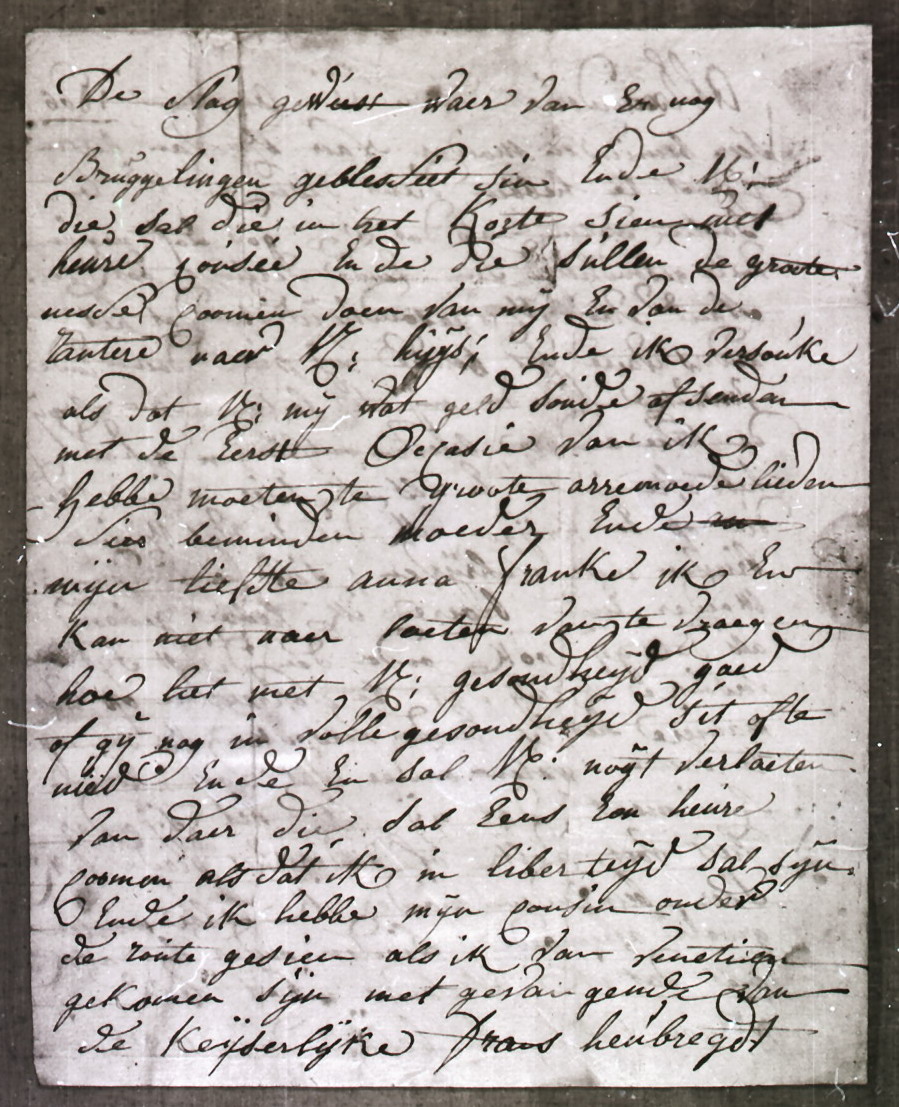 De slag geweest waer van Er nog
Bruggelingen geblesseert sin Ende V:
die sal die in het Korte sien met
heure Ende die sullen de groete
doen van mij En van de
naer V: Ende ik versouke
als dat V: mij wat geld soude afsenden
met de Eerste Occasie van ik
hebbe moeten te groote arremoede lieden
Seer beminden Moeder Ende
mijn liefste anna Franke ik En
kan niet naer laeten van te vraegen
hoe het met V: gesondheijd gaed
of gij nog in volle gesondheijd sit ofte
nied Ende En sal V: noijt verlaeten
van daer die sal Eens Een heure
coomen als dat ik in liberteijd sal sijn
Ende ik hebbe mijn cousin onder
de route gesien als ik van Venetien
gekomen sijn met gevangende van
de Keijserlijke Frans heubregdt